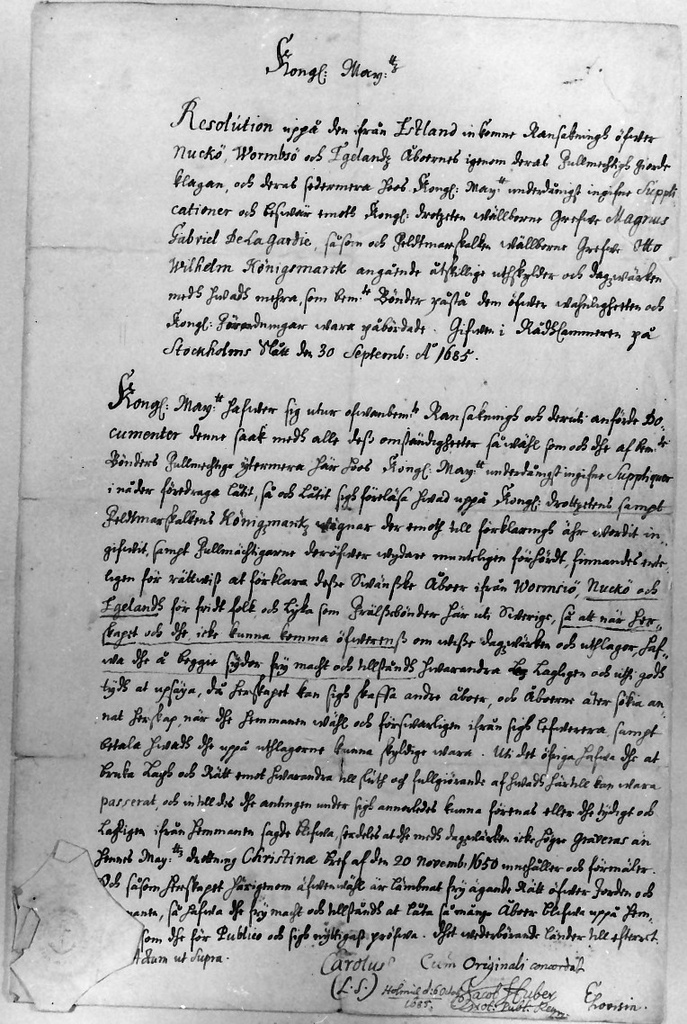 Kongl: May:tz
Resolution uppå den ifrån Estland inkomne Ransakningh öfwer
Nuckö, Wormbsö och Egelandz Åboernes igenom deras Fullmechtigh giorde
klagan, och deras sedermera hoos Kongl: May:tt underdånigst ingifne Suppli
cationer och beswär emoth Kongl: Drotzeten wällborne Grefwe Magnus
Gabriel De La Gardie, såsom och Feldtmarskalken wällborne Grefwe Otto
Wilhelm Königsmarck angående åtskillige uthskylder och dagzwärken
medh hwadh mehra, som bem:te Bönder påstå dem öfwer wahnligheeten och
Kongl: Förordningar wara påbördade. Gifwen i Rådhcammeren på
Stockholms Slått den 30 Septemb: A:o 1685.
Kongl: May:tt hafwer sig utur ofwanbem:te Ransakningh och deruti anförde Do-
cumenter denne saak medh alle dess omständigheeter så wähl som och dhe af bem:te
Bönders Fullmechtige ytermera här hoos Kongl: May:tt underdånigst ingifne Suppliquer
i nåder föredraga låtit, så och låtit sigh föreläsa hwad uppå Kongl: Drottzetens sampt
Feldtmarskalkens Königzmarkz wägnar der emoth till förklaringh ähr wordit in-
gifwit, sampt Fullmächtigarne deröfwer wydare munteligen förhördt, finnandes
ligen för rättwist at förklara desse Swänske Åboer ifrån Wormsiö, Nuckö och
Egelandh för fridt folk och lyka som Frälssebönder här uti Swerige, så att när Her-
skapet och dhe icke kunna komma öfwerens om wisse dagzwärken och uthlagor, haf-
wa dhe å beggie sijdor fry macht och tillståndh hwarandra Laghligen och uthi godh
tydh at upsäya, då Herskapet kan sigh skaffa andre åboer, och Åboerne åter sökia an-
nat Herskap, när dhe Hemmanen wähl och förswarligen ifrån sigh lefwerera sampt
betala hwadh dhe uppå uthlagorne kunna skyldige wara. Uti det öfriga hafwa dhe at
bruka Lagh och Rätt emot hwarandra till sluth och fullgiörande af hwadh härtill kan wara
passerat, och intill des dhe antingen under sigh annorledes kunna förenas eller dhe tydigt och
Lagligen ifrån Hemmanen sagde blifwa, serdeles at dhe medh dagzwärken icke högre graveras än
Hennes May:ttz Drottning Christinæ bref af den 20 Novemb: 1650 innehåller och förmäler.
Och såsom Herskapet härigenom äfwenwähl är lämbnat fry ägande Rätt öfwer Jorden och
så hafwa dhe fry macht och tillståndh at låta så månge Åboer blifwa uppå Hem-
som dhe för Publico och sigh nyttigast pröfwa. Dhet wederbörande länder till efterret.
Actum ut Supra.
Carolus Cum Originali concordat
(L.S.) Holmiæ d: 6 Octob: Jacob Huber
1685.